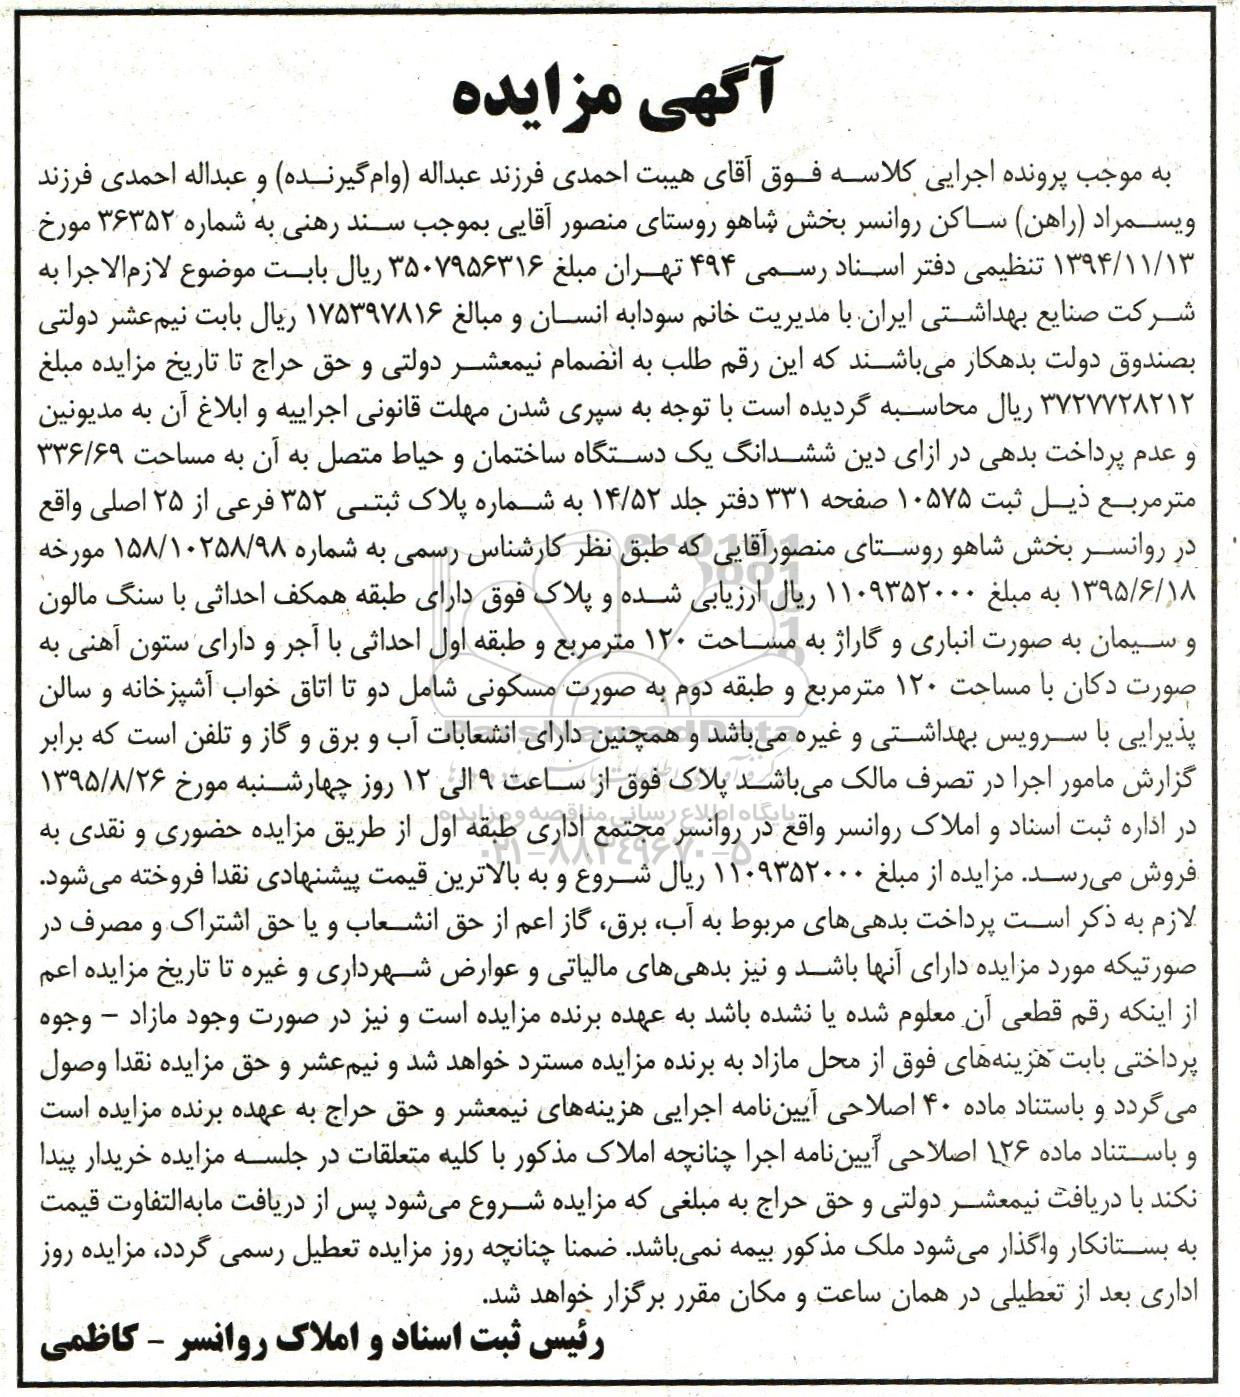 آگهی مزایده
به موجب پرونده اجرایی کلاسه فوق آقای هیبت احمدی فرزند عبداله (وام‌گیرنده) و عبداله احمدی فرزند
ویسمراد (راهن) ساکن روانسر بخش شاهو روستای منصور آقایی بموجب سند رهنی به شماره ۳۶۳۵۲ مورخ
۱۳۹۴/۱۱/۱۳ تنظیمی دفتر اسناد رسمی ۴۹۴ تهران مبلغ ۳۵۰۷۹۵۶۳۱۶ ریال بابت موضوع لازم‌الاجرا به
شرکت صنایع بهداشتی ایران با مدیریت خانم سودابه انسان و مبالغ ۱۷۵۳۹۷۸۱۶ ریال بابت نیم‌عشر دولتی
بصندوق دولت بدهکار می‌باشند که این رقم طلب به انضمام نیمعشر دولتی و حق حراج تا تاریخ مزایده مبلغ
۳۷۲۷۷۲۸۲۱۲ ریال محاسبه گردیده است با توجه به سپری شدن مهلت قانونی اجراییه و ابلاغ آن به مدیونین
و عدم پرداخت بدهی در ازای دین ششدانگ یک دستگاه ساختمان و حیاط متصل به آن به مساحت ۳۳۶/۶۹
مترمربع ذیل ثبت ۱۰۵۷۵ صفحه ۳۳۱ دفتر جلد ۱۴/۵۲ به شماره پلاک ثبتی ۳۵۲ فرعی از ۲۵ اصلی واقع
در روانسر بخش شاهو روستای منصورآقایی که طبق نظر کارشناس رسمی به شماره ۱۵۸/۱۰۲۵۸/۹۸ مورخه
۱۳۹۵/۶/۱۸ به مبلغ ۱۱۰۹۳۵۲۰۰۰ ریال ارزیابی شده و پلاک فوق دارای طبقه همکف احداثی با سنگ مالون
و سیمان به صورت انباری و گاراژ به مساحت ۱۲۰ مترمربع و طبقه اول احداثی با آجر و دارای ستون آهنی به
صورت دکان با مساحت ۱۲۰ مترمربع و طبقه دوم به صورت مسکونی شامل دو تا اتاق خواب آشپزخانه و سالن
پذیرایی با سرویس بهداشتی و غیره می‌باشد و همچنین دارای انشعابات آب و برق و گاز و تلفن است که برابر
گزارش مامور اجرا در تصرف مالک می‌باشد پلاک فوق از ساعت ۹ الی ۱۲ روز چهارشنبه مورخ ۱۳۹۵/۸/۲۶
در اداره ثبت اسناد و املاک روانسر واقع در روانسر مجتمع اداری طبقه اول از طریق مزایده حضوری و نقدی به
فروش می‌رسد. مزایده از مبلغ ۱۱۰۹۳۵۲۰۰۰ ریال شروع و به بالاترین قیمت پیشنهادی نقدا فروخته می‌شود.
لازم به ذکر است پرداخت بدهی‌های مربوط به آب، برق، گاز اعم از حق انشعاب و یا حق اشتراک و مصرف در
صورتیکه مورد مزایده دارای آنها باشد و نیز بدهی‌های مالیاتی و عوارض شهرداری و غیره تا تاریخ مزایده اعم
از اینکه رقم قطعی آن معلوم شده یا نشده باشد به عهده برنده مزایده است و نیز در صورت وجود مازاد – وجوه
پرداختی بابت هزینه‌های فوق از محل مازاد به برنده مزایده مسترد خواهد شد و نیم‌عشر و حق مزایده نقدا وصول
می‌گردد و باستناد ماده ۴۰ اصلاحی آیین‌نامه اجرایی هزینه‌های نیمعشر و حق حراج به عهده برنده مزایده است
و باستناد ماده ۱۲۶ اصلاحی آیین‌نامه اجرا چنانچه املاک مذکور با کلیه متعلقات در جلسه مزایده خریدار پیدا
نکند با دریافت نیمعشر دولتی و حق حراج به مبلغی که مزایده شروع می‌شود پس از دریافت مابه‌التفاوت قیمت
به بستانکار واگذار می‌شود ملک مذکور بیمه نمی‌باشد. ضمنا چنانچه روز مزایده تعطیل رسمی گردد، مزایده روز
اداری بعد از تعطیلی در همان ساعت و مکان مقرر برگزار خواهد شد.
رئیس ثبت اسناد و املاک روانسر – کاظمی
ParsNamadData
پایگاه اطلاع رسانی مناقصه و مزایده
۰۲۱-۸۸۳۴۹۶۷۰-۵